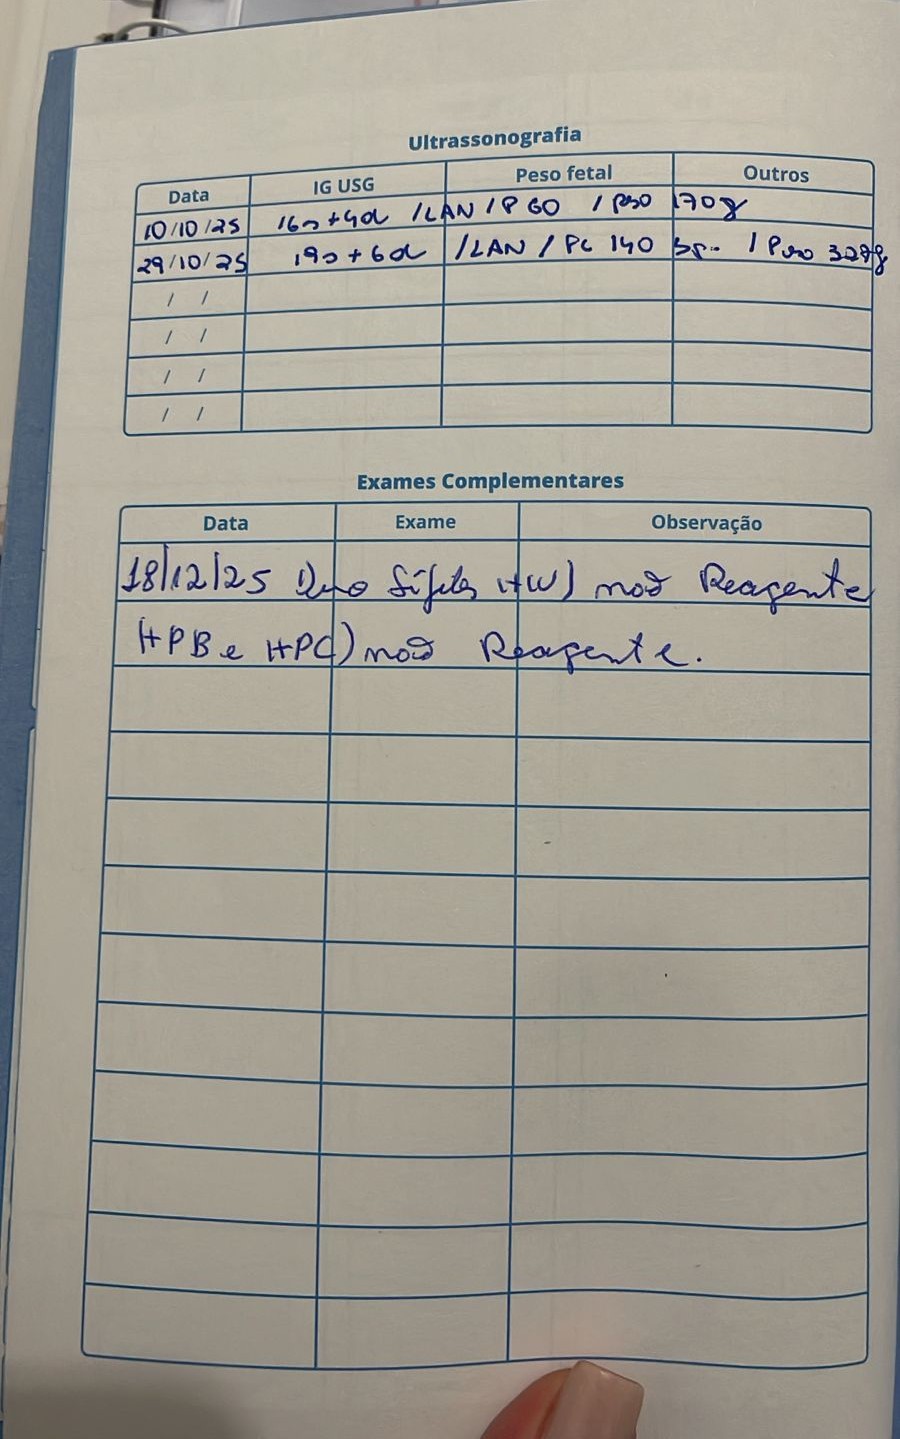 Ultrassonografia
Data IG USG Peso fetal Outros
10/10/25 16s+4d /LAN / P GO / peso 170g
29/10/25 19s+6d /LAN / PC 140 / Peso 328g
/ /
/ /
/ /
/ /
Exames Complementares
Data Exame Observação
18/12/25 Duo Sífilis HIV) não Reagente
HPB e HPC) não Reagente.